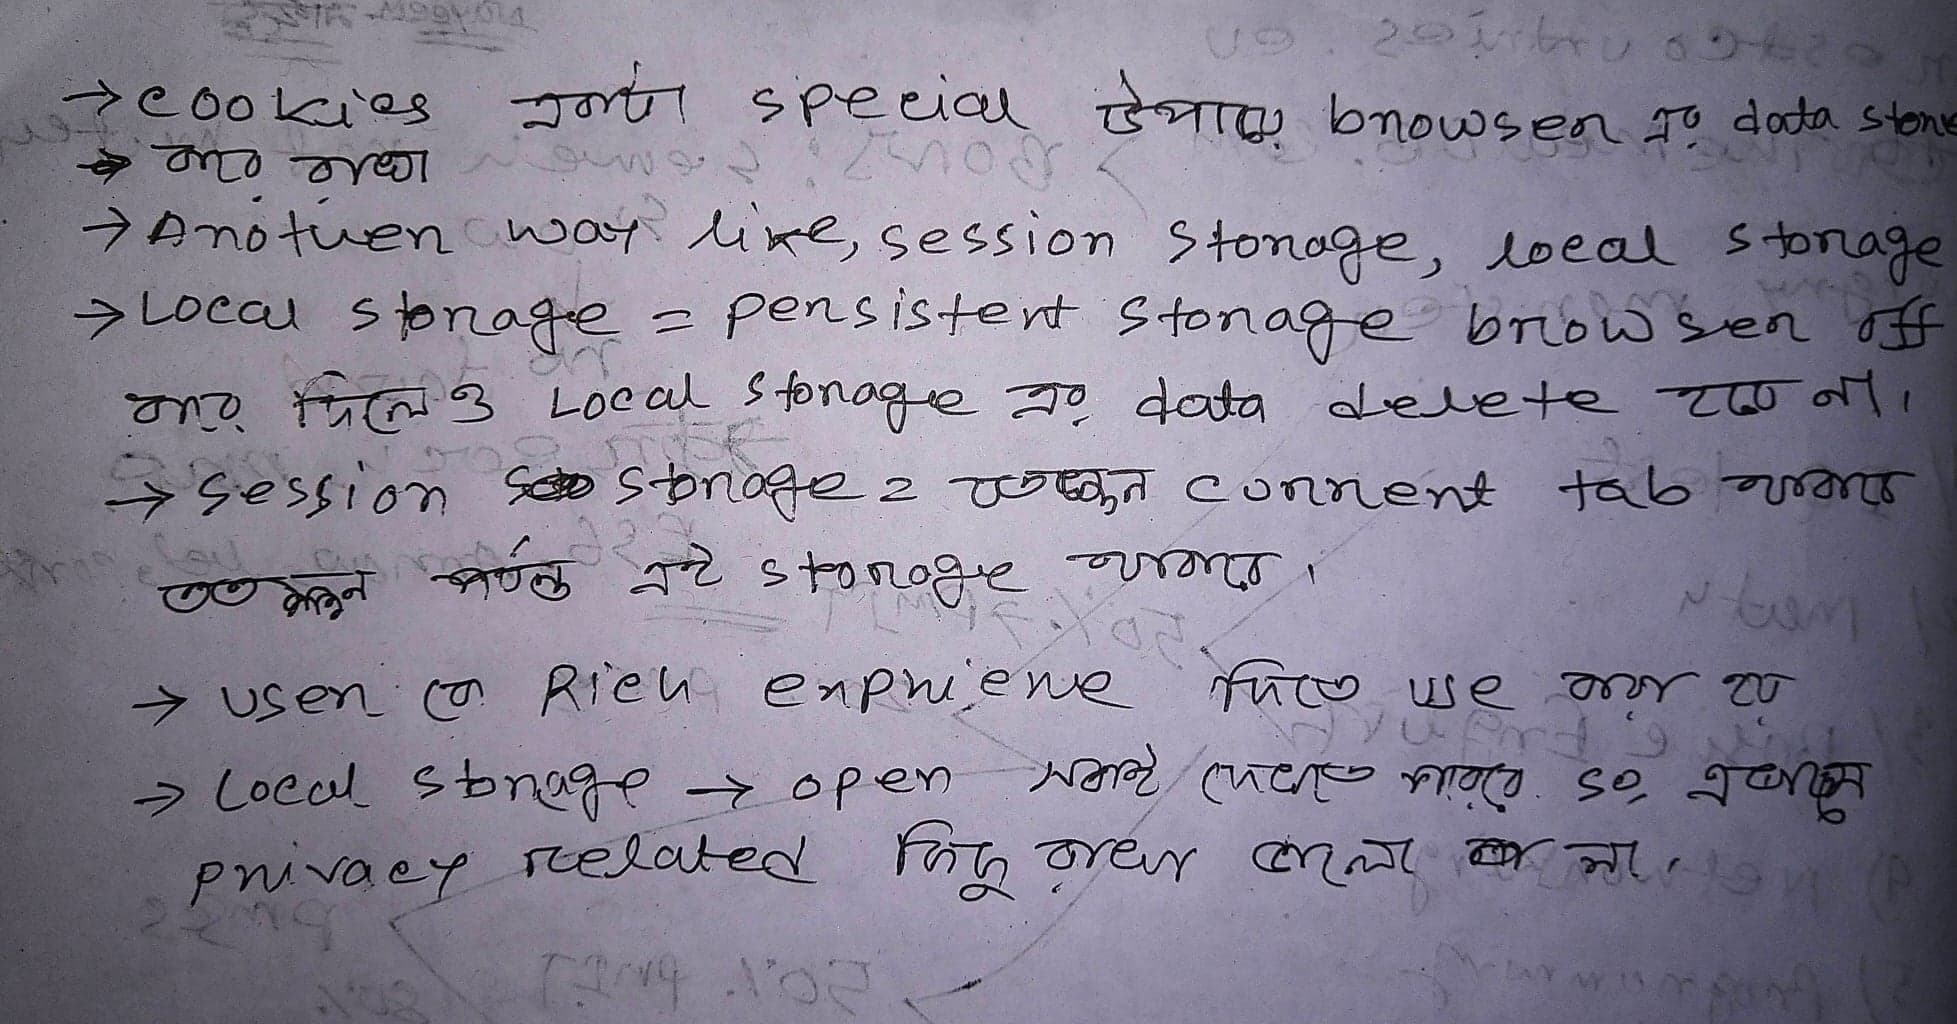 → cookies একটা special উপায়ে browser এর data store
→ করে রাখা
→ Another way like, session storage, local storage
→ Local storage = persistent storage browser off
করে দিলেও Local storage এর data delete হবে না।
→ session storage = যতক্ষন current tab থাকবে
ততক্ষন পর্যন্ত এই storage থাকবে।
→ user কে Rich exprience দিতে use করা হয়
→ Local storage → open সবাই দেখতে পারবে so, এখানে
privacy related কিছু রাখা না।